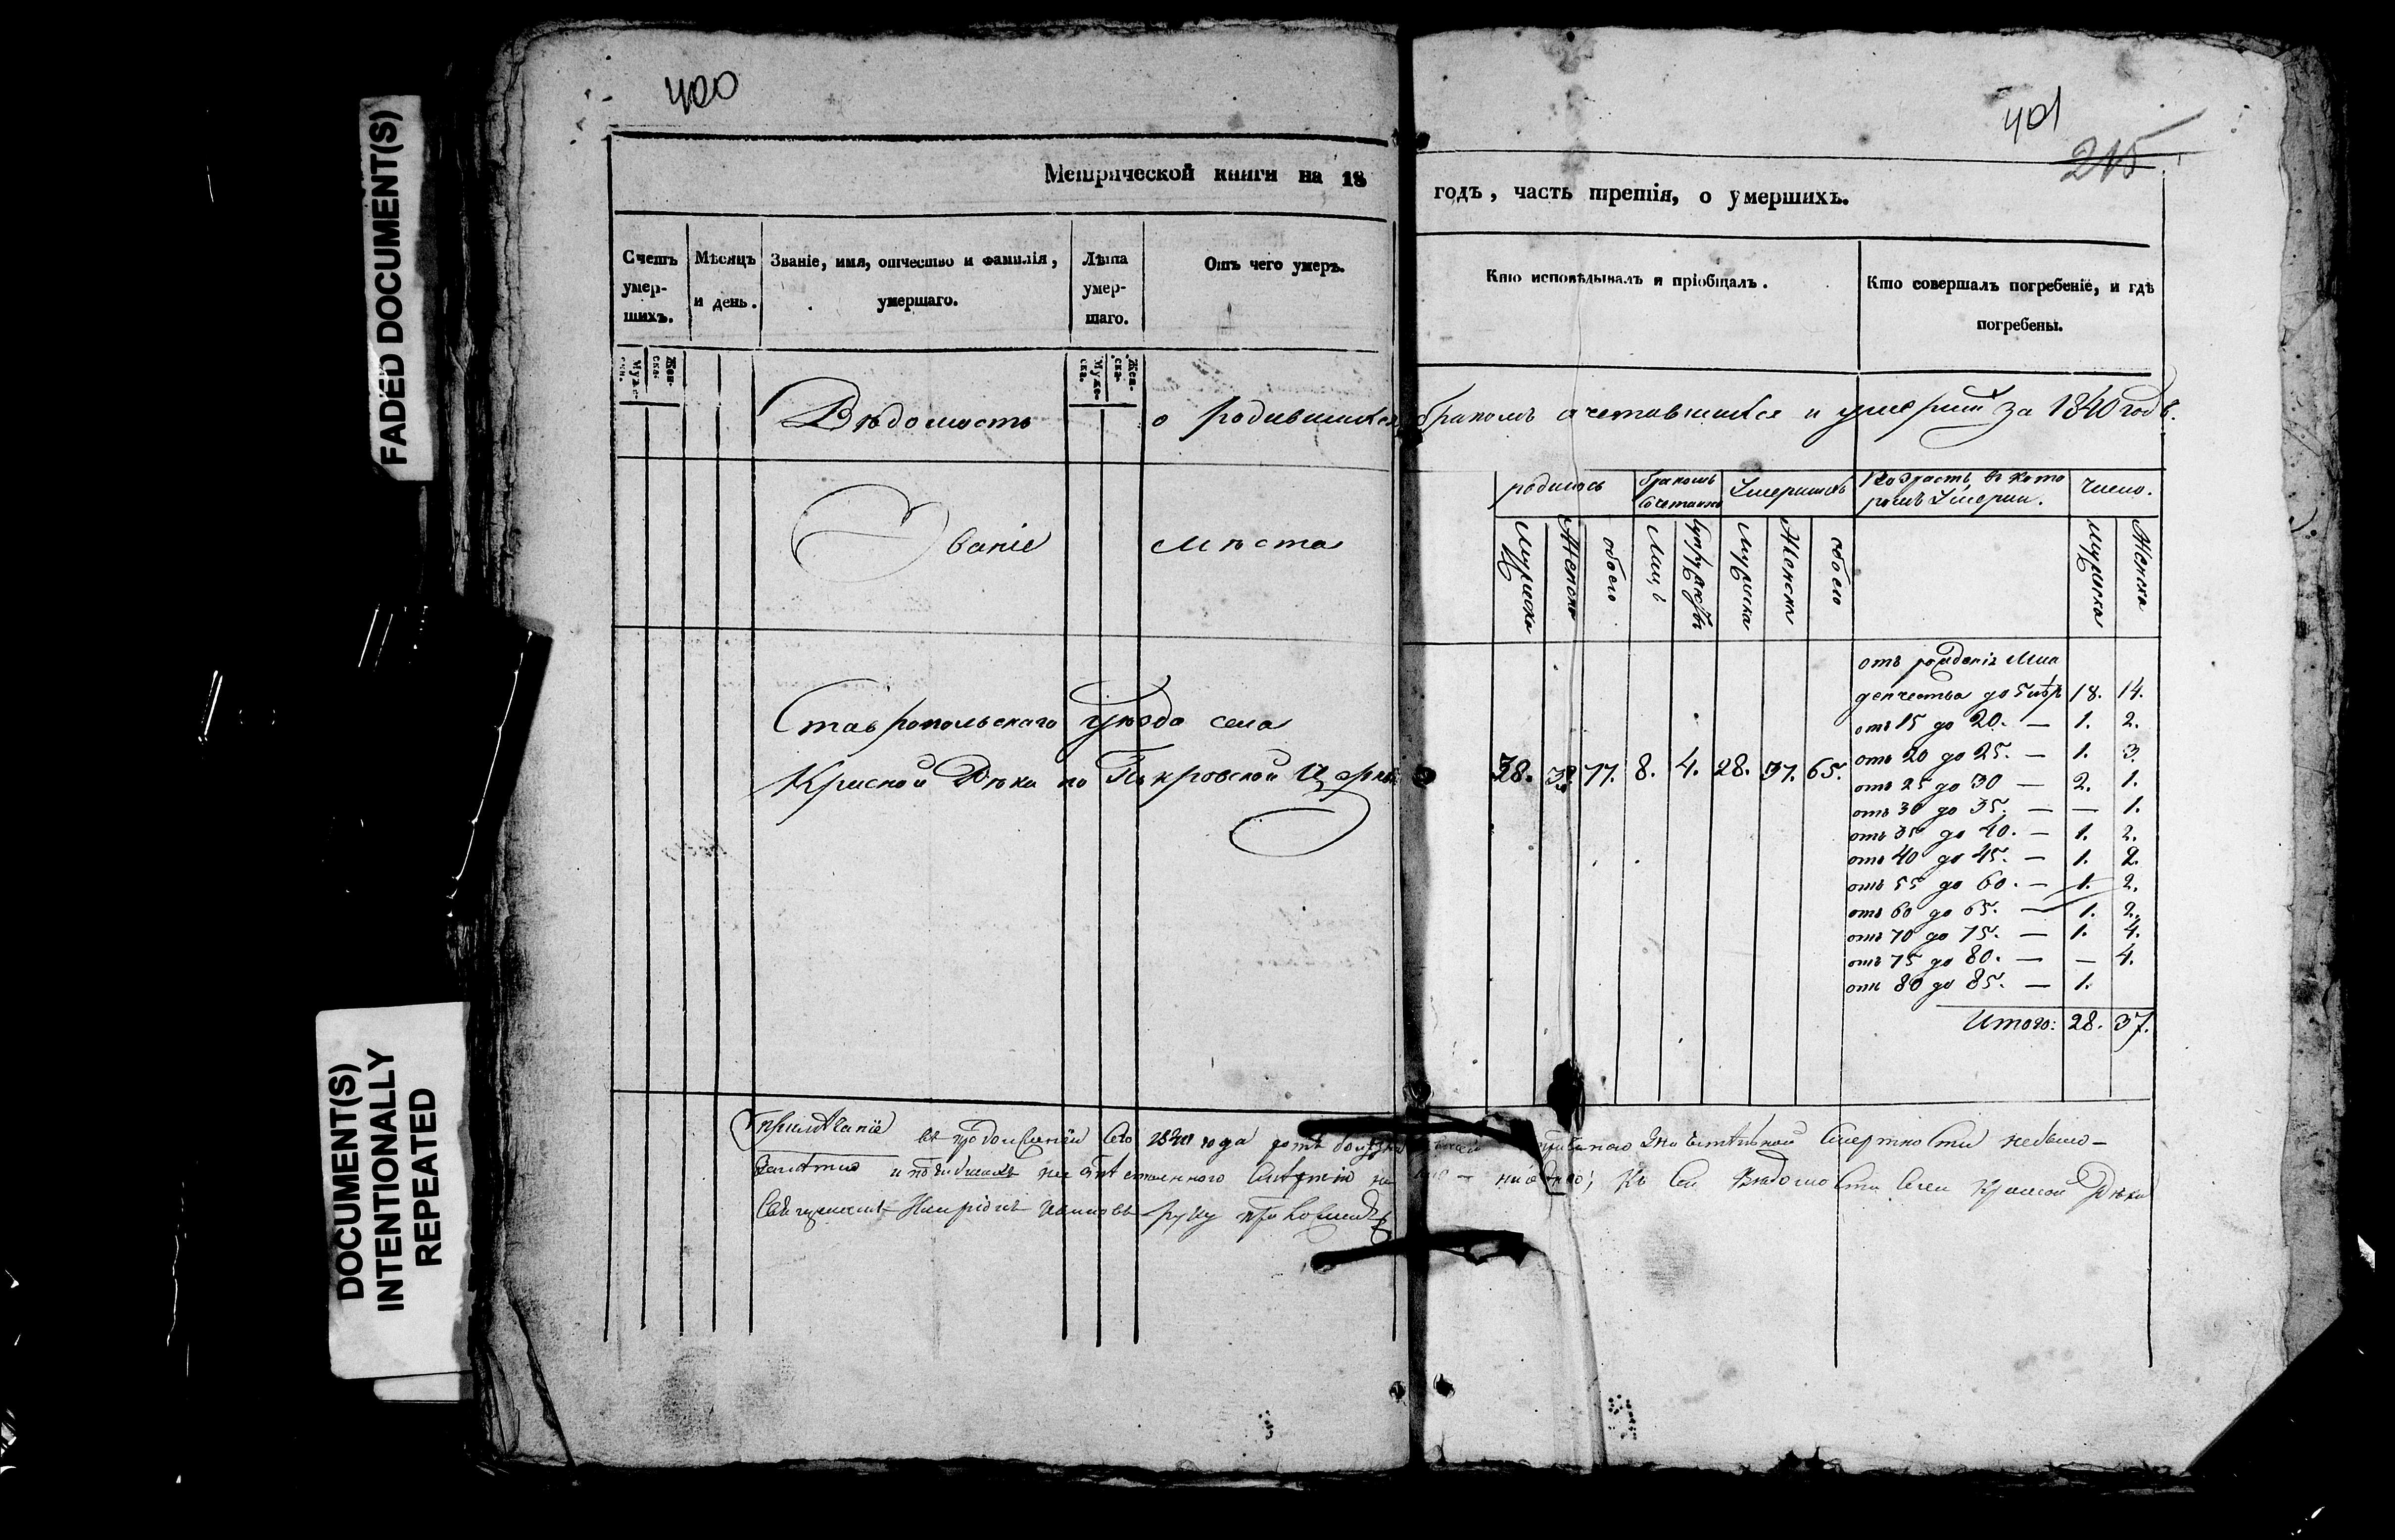 FADED DOCUMENT(S)
DOCUMENT(S)
INTENTIONALLY
REPEATED
400
401
215
Метрической книги на 18
годъ, часть третія, о умершихъ.
Счетъ умер-шихъ.
Мѣсяцъ и день.
Званіе, имя, отчество и фамилія, умершаго.
Лѣта умер-шаго.
Отъ чего умеръ.
Кто исповѣдывалъ и пріобщалъ.
Кто совершалъ погребеніе, и гдѣ погребены.
Муже-ска.
Жен-ска.
Муже-ска.
Жен-ска.
Вѣдомость о родившихся, бракомъ сочетавшихся и умерших за 1840 годъ.
Званіе мѣста
родилось
бракомъ
Умершихъ
Возрастъ въ кото
ромъ Умерли.
Число.
Мужеска
Женска
обоего
Лицъ
Супружествъ
Мужеска
Женска
обоего
Мужеска
Женска
Ставропольскаго Уѣзда села
Красной Рѣки по Покровской Церкви
38. 39. 77. 8. 4. 28. 37. 65.
отъ рожденія Мла
денчества до 5 лѣтъ 18. 14.
отъ 15 до 20. — 1. 2.
отъ 20 до 25. — 1. 3.
отъ 25 до 30 — 2. 1.
отъ 30 до 35. — — 1.
отъ 35 до 40. — 1. 2.
отъ 40 до 45. — 1. 2.
отъ 55 до 60. — 1. 2.
отъ 60 до 65. — 1. 2.
отъ 70 до 75. — 1. 4.
отъ 75 до 80. — — 4.
отъ 80 до 85. — 1.
Итого: 28. 37.
Примѣчаніе въ продолженіи сего 1840 года смертности небыло —
Къ сей Вѣдомости села Красной Рѣки
Священникъ руку приложилъ